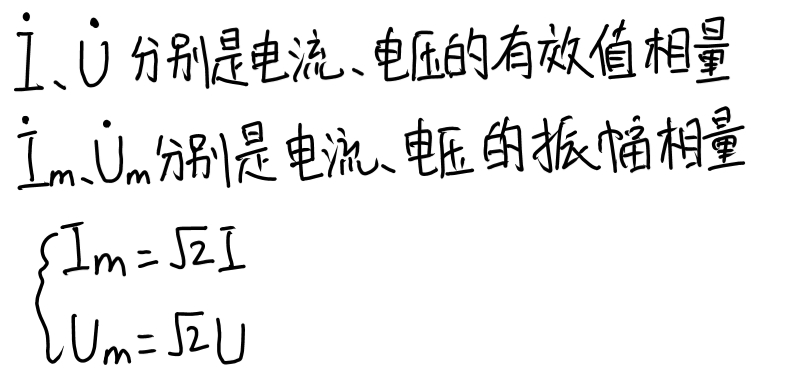 İ、U̇ 分别是电流、电压的有效值相量
İm、U̇m分别是电流、电压的振幅相量
{Im=√2I
Um=√2U